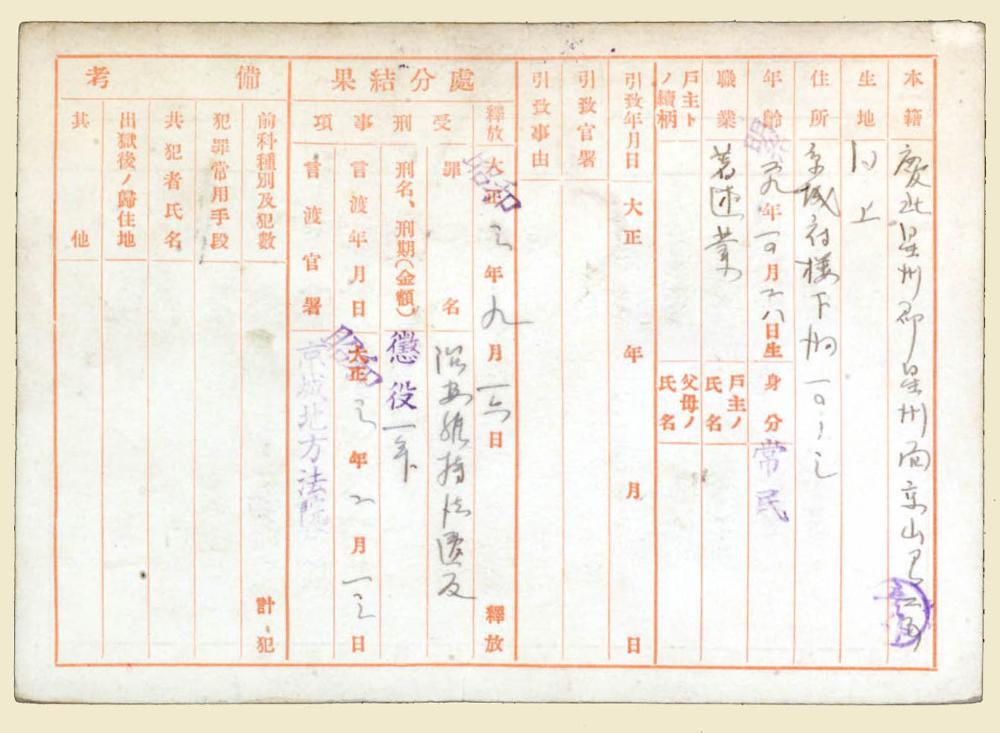 本籍 慶北星州郡星州面京山里
生地 同上
住所 京城府樓下洞一〇ノ三
年齡 年一〇月二八日生 身分 常民
職業 著述業 戶主ノ氏名
戶主トノ續柄 父母ノ氏名
引致年月日 大正 年 月 日
引致官署
引致事由
處分結果
釋放 大正 昭和 三年九月一六日 釋放
受刑事項
罪名 治安維持法違反
刑名、刑期(金額) 懲役一年
言渡年月日 大正 昭和 三年二月一三日
言渡官署 京城地方法院
備考
前科種別及犯數 計 犯
犯罪常用手段
共犯者氏名
出獄後ノ歸住地
其他